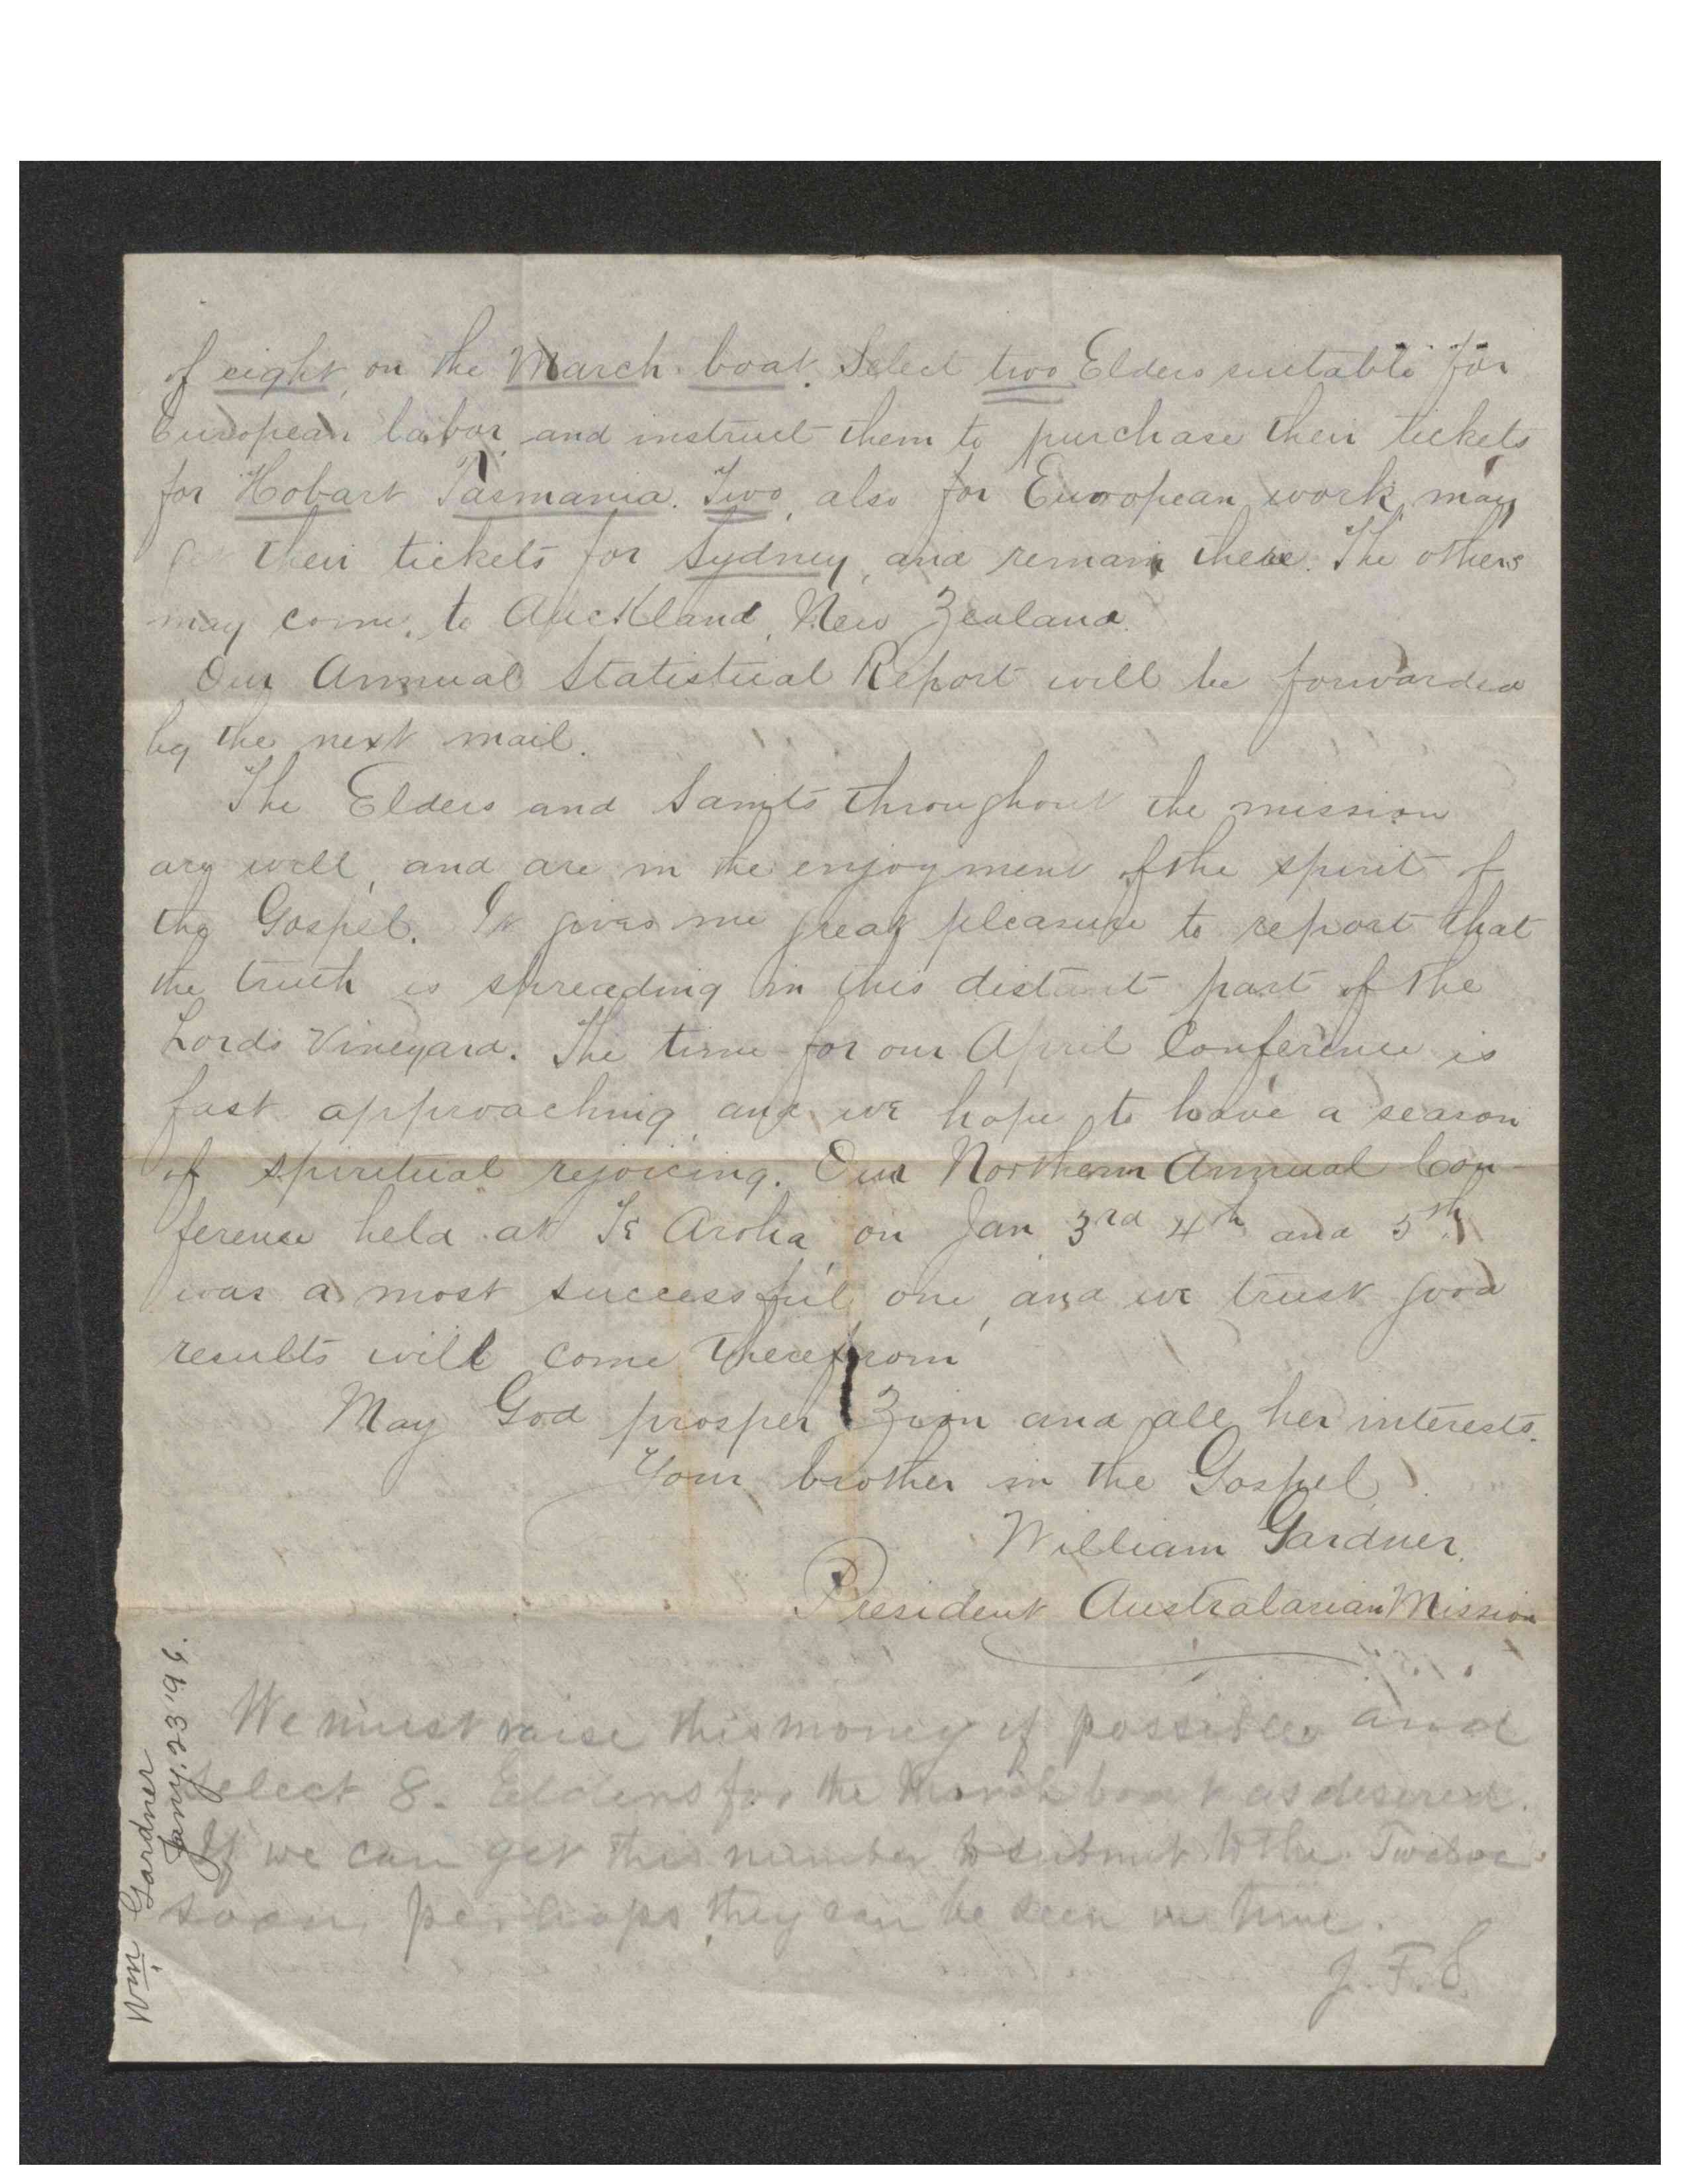 of eight, on the March boat. Select two Elders suitable for
European labor, and instruct them to purchase their tickets
for Hobart Tasmania. Two, also for European work, may
get their tickets for Sydney, and remain there. The others
may come, to Auckland, New Zealand.
Our Annual Statistical Report will be forwarded
by the next mail.
The Elders and Saints throughout the mission
are well, and are in the enjoyment of the spirit of
the Gospel. It gives me great pleasure to report that
the truth is spreading in this distant part of the
Lords Vineyard. The time for our April Conference is
fast approaching, and we hope to have a season
of spiritual rejoicing. Our Northern Annual Con-
ference held at Te Aroha, on Jan 3rd 4th and 5th,
was a most successful one, and we trust good
results will come therefrom
May God prosper Zion and all her interests.
Your brother in the Gospel,
William Gardner,
President Australasian Mission
We must raise this money if possible and
select 8. Elders for the March boat as desired.
If we can get this number to submit to the Twelve
soon, perhaps they can be seen in time.
J. F. S.
Wm Gardner
Jany. 23 '96.